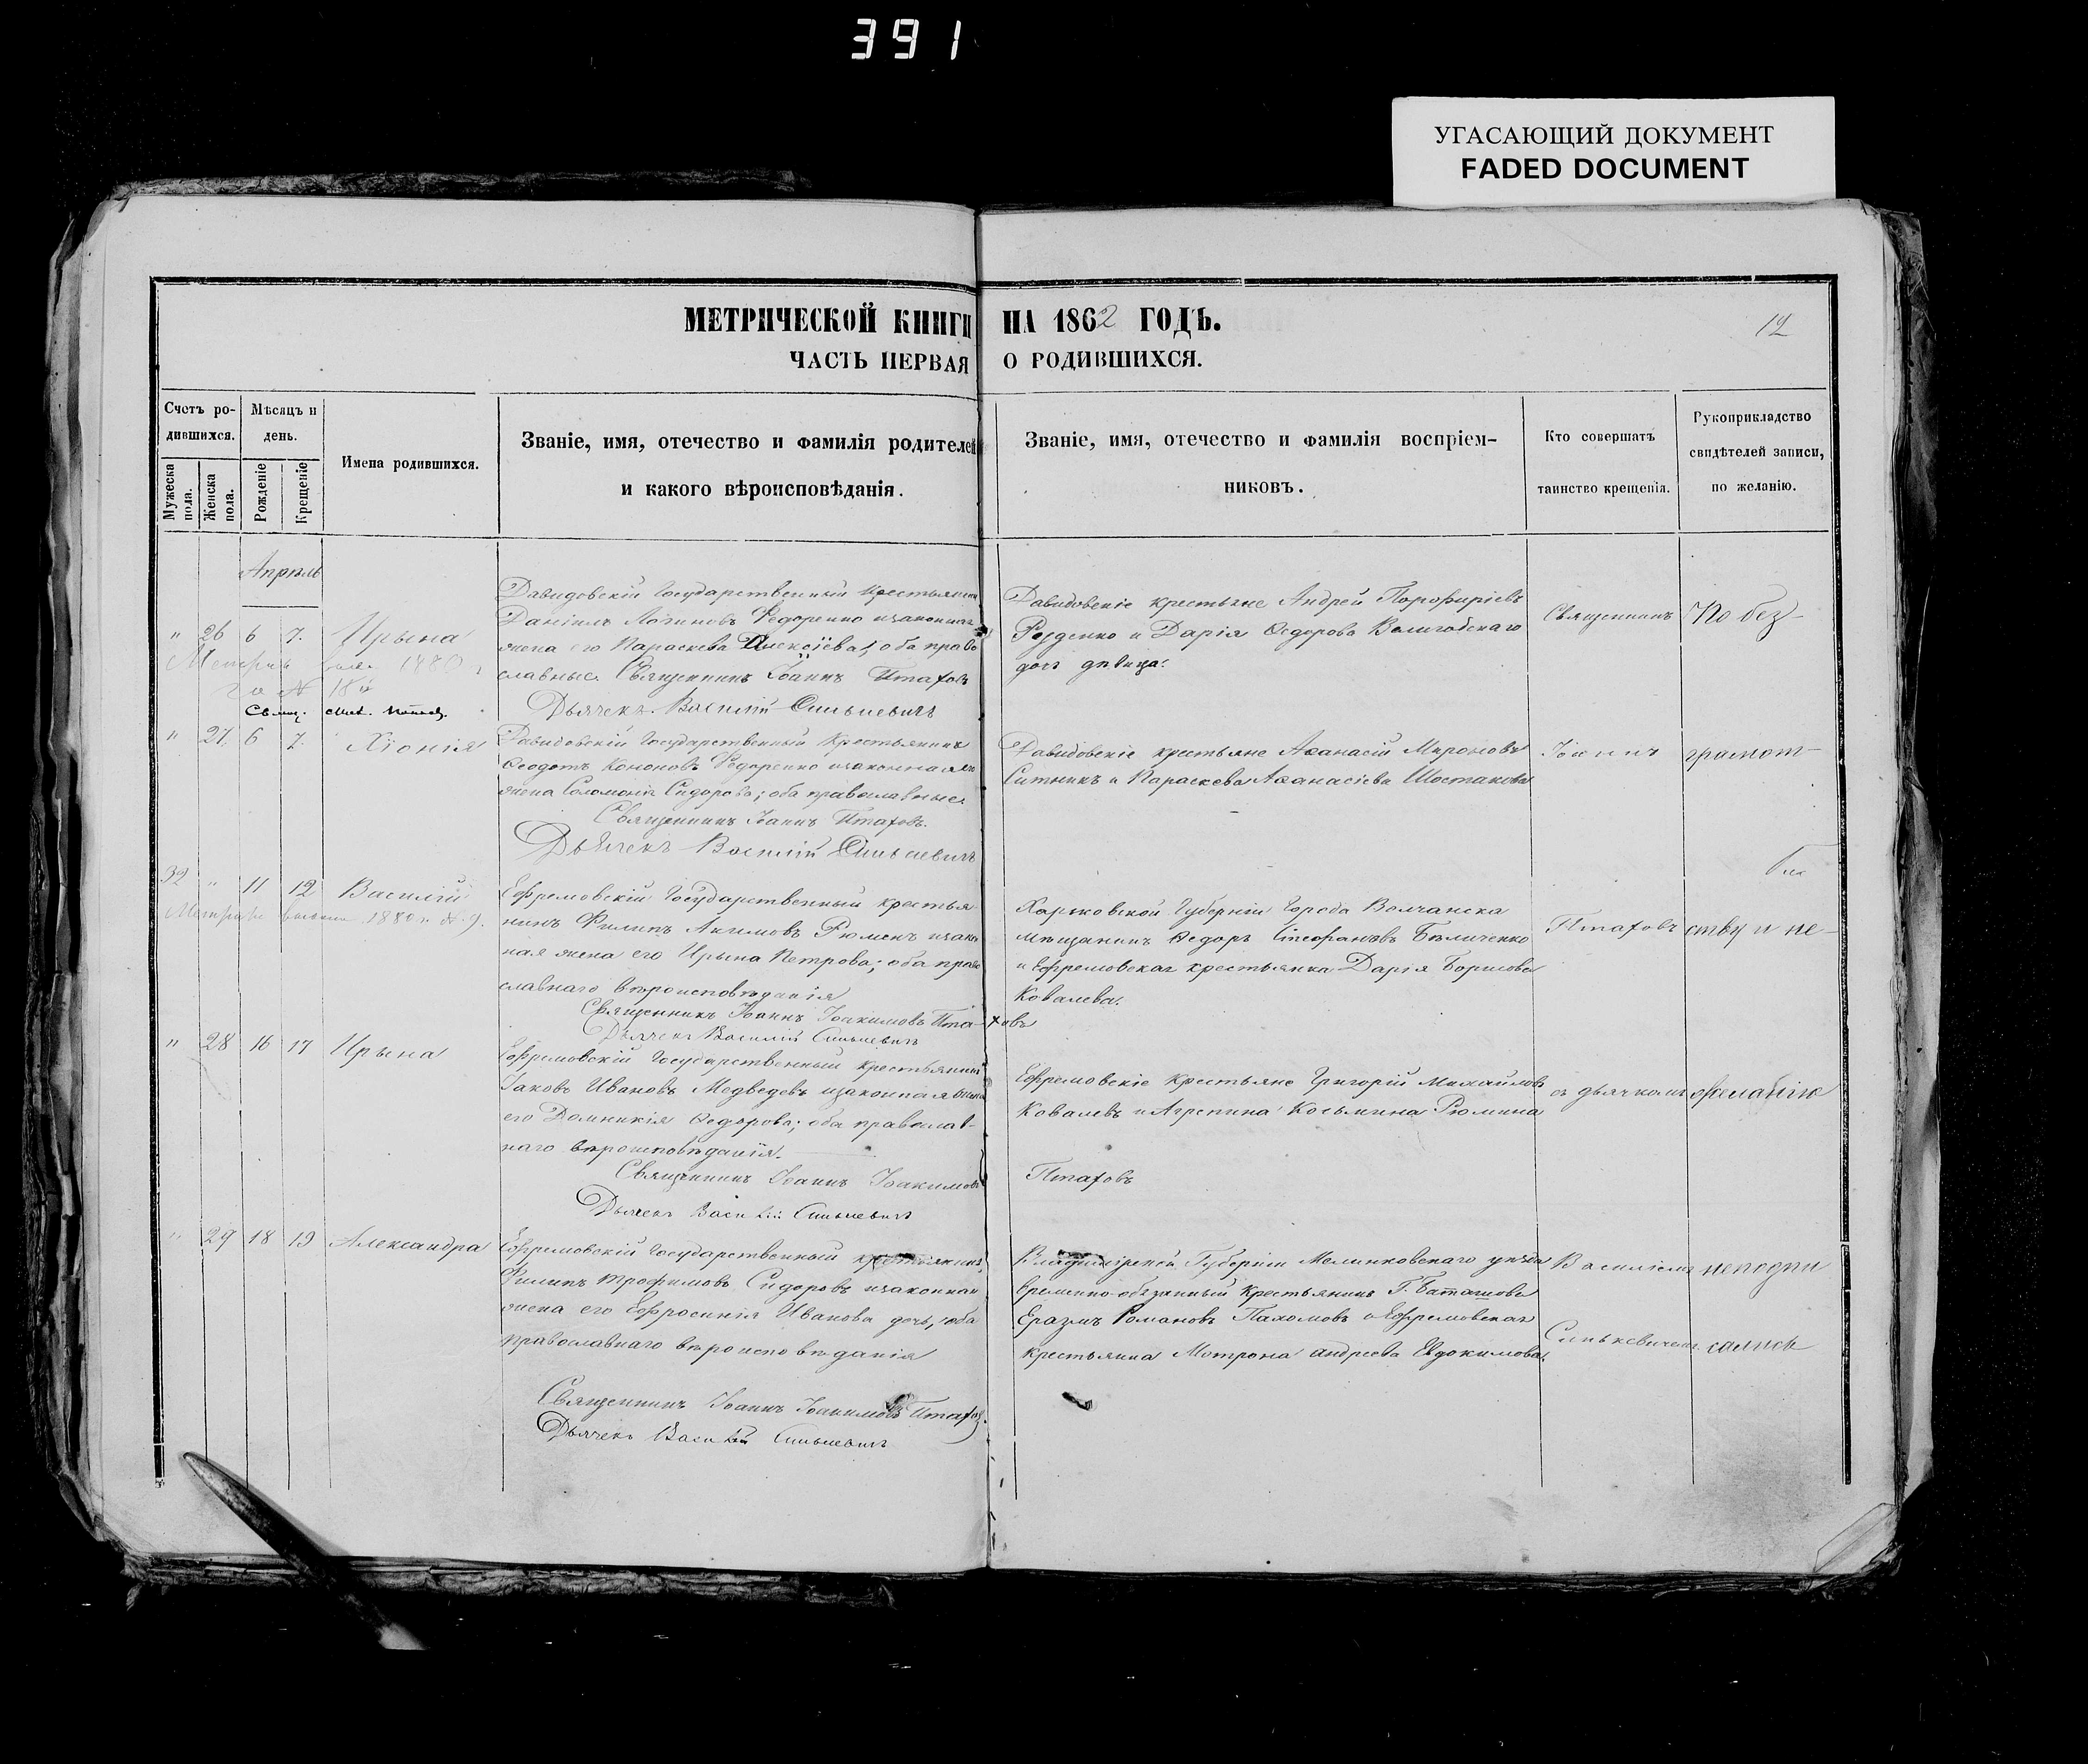 391
УГАСАЮЩИЙ ДОКУМЕНТ
FADED DOCUMENT
МЕТРИЧЕСКОЙ КНИГИ НА 1862 ГОДЪ.
12
ЧАСТЬ ПЕРВАЯ О РОДИВШИХСЯ.
Счетъ ро-
дившихся.
Мужеска пола.
Женска пола.
Мѣсяцъ и
день.
Рожденіе
Крещеніе
Имена родившихся.
Званіе, имя, отечество и фамилія родителей
и какого вѣроисповѣданія.
Званіе, имя, отечество и фамилія воспріем-
никовъ.
Кто совершатъ
таинство крещенія.
Рукоприкладство
свидѣтелей записи,
по желанію.
Апрѣль
" 26 6 7. Ирына
1880
Давидовскій Государственный крестьянин
Даніилъ Логиновъ Федоренко изаконная
жена его Параскева Алексіева; оба право
славные. Священникъ Іоаннъ Птаховъ
Дьячекъ Василій Синькевичъ
Давидовскіе крестьяне Андрей Порофиріевъ
Руденко и Дарія Ѳедорова
доч дѣвица.
" 27. 6 7. Хіонія
Давидовскій Государственный крестьянинъ
Ѳеодотъ Кононовъ Федоренко изаконная его
жена Соломонія Сидорова; оба православные
Священникъ Іоаннъ Птаховъ.
Дьячекъ Василій Синькевичъ
Давидовскіе крестьяне Аѳанасій Мироновъ
Ситникъ и Параскева Аѳанасіева Шостакова
32 " 11 12 Василій
1880 г. № 9.
Ефремовскій Государственный крестья-
нинъ Филипъ Акимовъ Рюминъ изакон
ная жена его Ирына Петрова; оба право
славнаго вѣроисповѣданія
Священникъ Іоаннъ Іоакимовъ Пта-ховъ
Дьячекъ Василій Синькевичъ
Харьковской Губерніи Города Волчанска
мѣщанинъ Ѳедоръ Стефановъ Бѣличенко
и Ефремовская крестьянка Дарія Борисова
Ковалева.
" 28 16 17 Ирына
Ефремовскій Государственный крестьянинъ
Іаковъ Ивановъ Медведевъ изаконная жена
его Домникія Ѳедорова; оба православ-
наго вѣроисповѣданія.
Священникъ Іоаннъ Іоакимовъ Птаховъ
Дьячекъ Василій Синькевичъ
Ефремовскіе крестьяне Григорій Михайловъ
Ковалевъ и Агрепина Косьмина Рюмина
" 29 18 19 Александра
Ефремовскій Государственный крестьянинъ,
Филипъ Трофимовъ Сидоровъ изаконная
жена его Ефросинія Иванова дочь, оба
православнаго вѣроисповѣданія
Священникъ Іоаннъ Іоакимовъ Птаховъ.
Дьячекъ Василій Синькевичъ
Владимірской Губерніи Меленковскаго уѣзда
временно-обязанный крестьянинъ Г. Баташова
Еразмъ Романовъ Пахомовъ и Ефремовская
крестьянка Мотрона андреева Евдокимова.
Священникъ
Іоаннъ
Птаховъ
съ дьячкомъ
Василіемъ
Синькевичемъ
По без-
грамот-
ству и не-
желанію
неподпи
сались